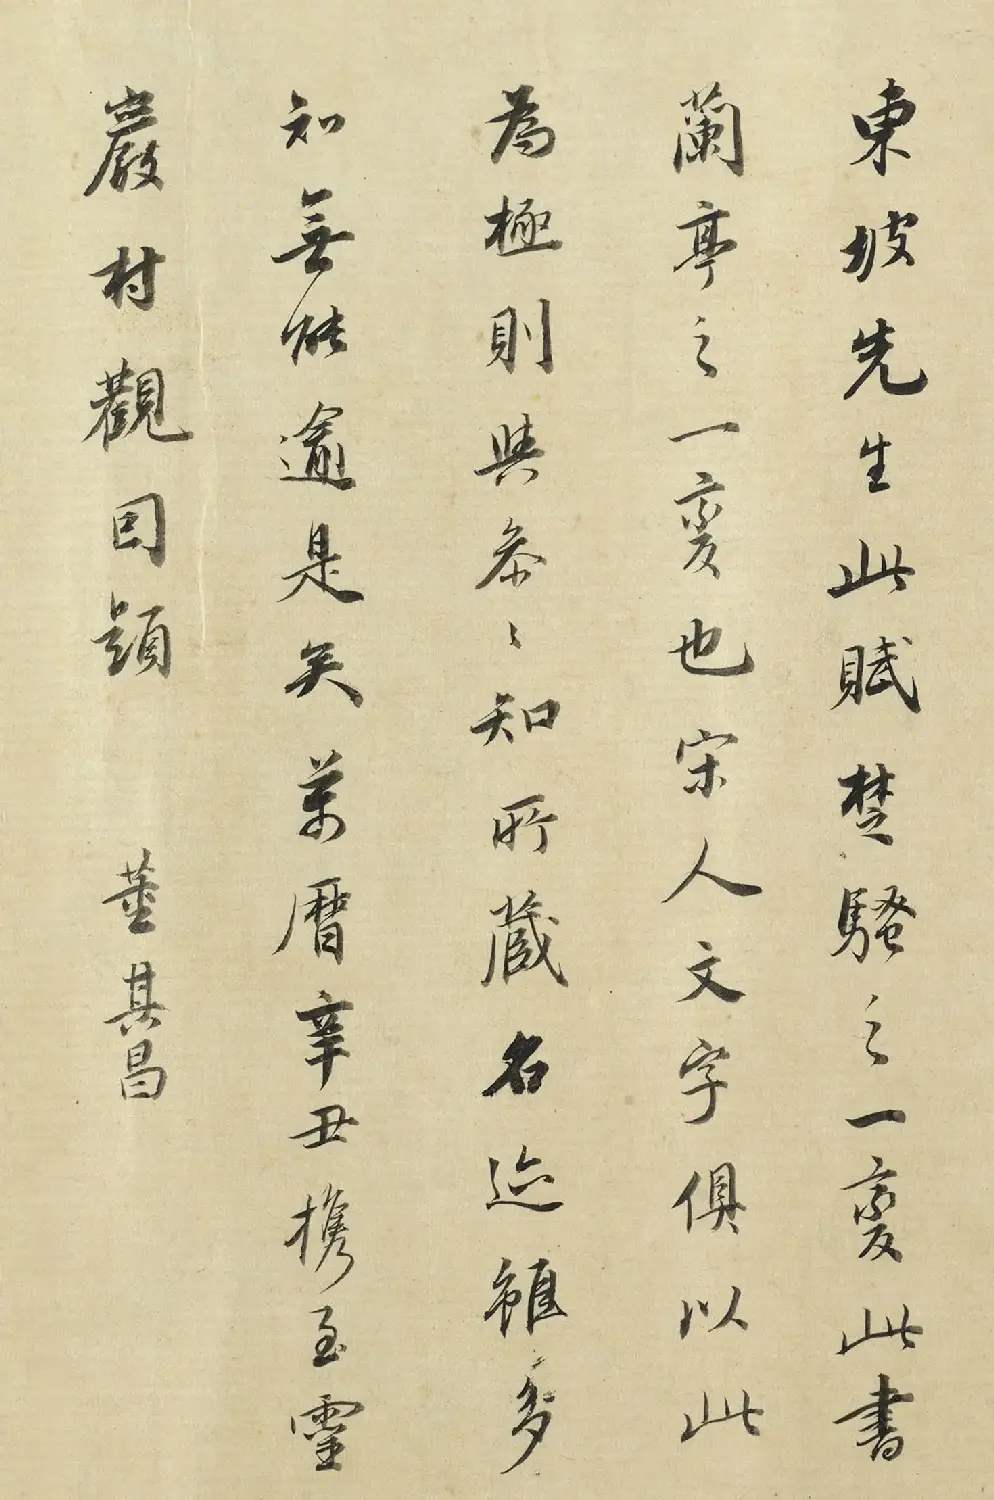 東坡先生此賦楚騷之一變此書
蘭亭之一變也宋人文字俱以此
為極則與參參知所藏名迹雖多
知無能逾是矣萬曆辛丑攜至靈
巖村觀因題 董其昌